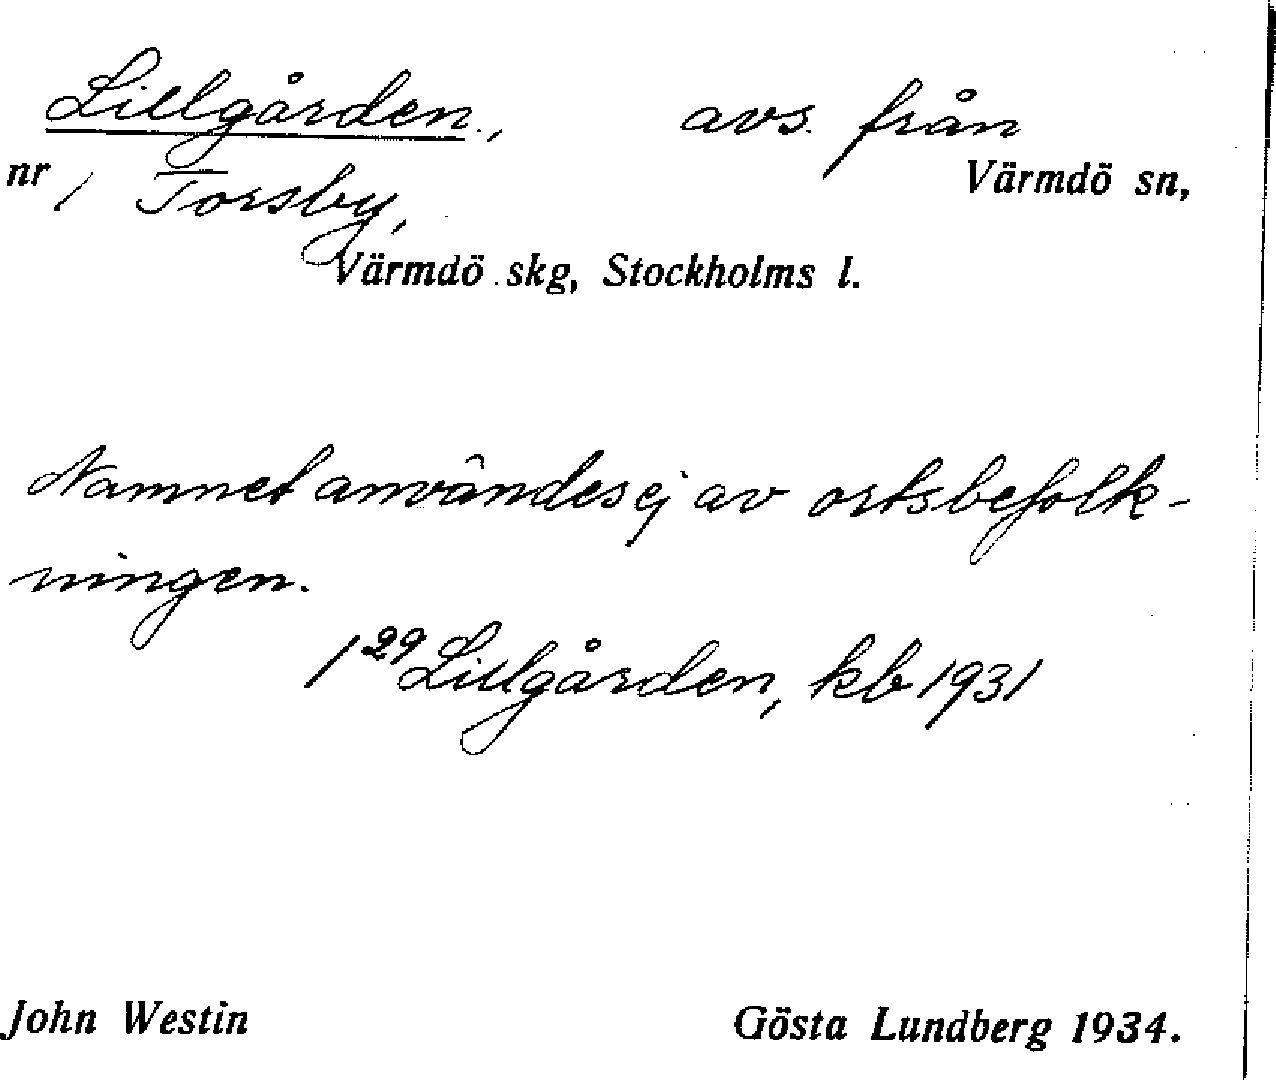 Lillgården, avs. från
nr 1 Torsby, Värmdö sn,
Värmdö skg, Stockholms l.
Namnet användes ej av ortsbefolk-
ningen.
1²⁹ Lillgården, kb 1931
John Westin Gösta Lundberg 1934.